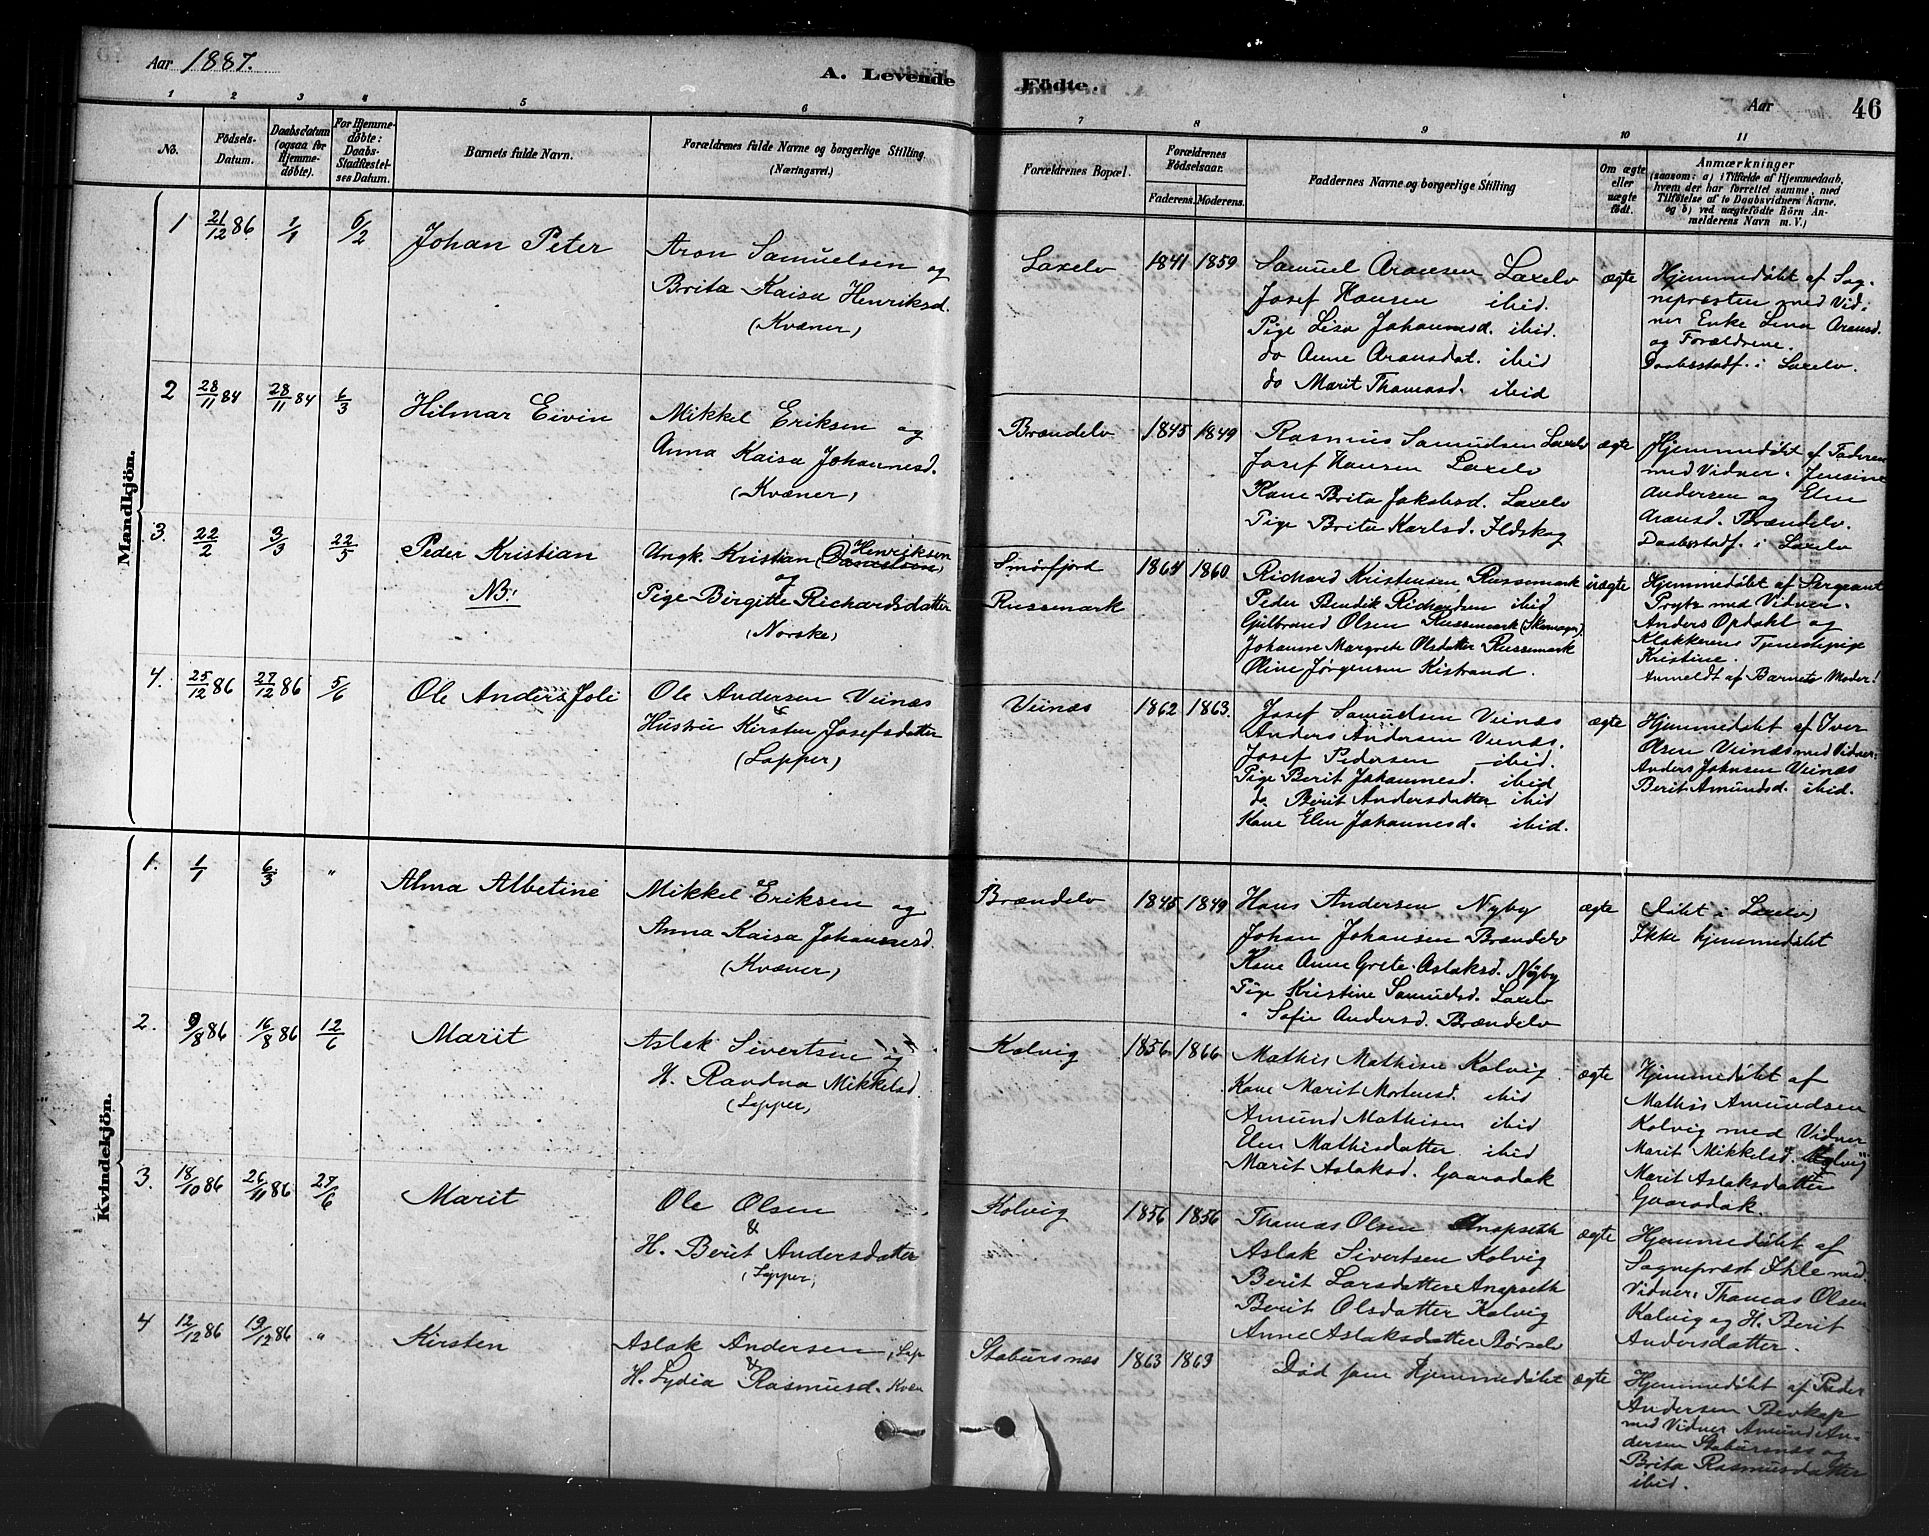 Aar 1887.
A. Levende Födte.
Aar
46
1 2 3 4 5 6 7 8 9 10 11
No.
Födsels-
Datum.
Daabsdatum
(ogsaa for
Hjemme-
döbte).
For Hjemme-
döbte:
Daabs-
Stadfæstel-
ses Datum.
Barnets fulde Navn.
Forældrenes fulde Navne og borgerlige Stilling
(Næringsvei.)
Forældrenes Bopæl.
Forældrenes
Födselsaar.
Faderens. Moderens.
Faddernes Navne og borgerlige Stilling
Om ægte
eller
uægte
födt.
Anmærkninger
(saasom: a) i Tilfælde af Hjemmedaab,
hvem der har forrettet samme, med
Tilföielse af to Daabsvidners Navne.
og b) ved uægtefödte Börn An-
melderens Navn m. V.)
Mandkjön.
1 21/12 86 1/1 6/2 Johan Peter
Aron Samuelsen og
Brita Kaisa Henriksd.
(Kvæner)
Laxelv 1841 1859
Samuel Aronsen Laxelv
Josef Hansen ibid.
Pige Lisa Johannesd. ibid.
do Anne Aronsdat. ibid
do Marit Thomasd. ibid
ægte
Hjemmedøbt af Sog-
nepræsten med Vid-
ner Enke Lena Aronsd.
og Forældrene.
Daabsstadf. i Laxelv.
2 28/11 84 28/11 84 6/3 Hilmar Eivin
Mikkel Eriksen og
Anna Kaisa Johannesd.
(Kvæner)
Brændelv 1845 1849
Rasmus Samuelsen Laxelv
Josef Hansen Laxelv
Kone Brita Jakobsd. Laxelv
Pige Brita Karlsd. Ildskog
ægte
Hjemmedøbt af Faderen
med Vidner. Jensine
Andersen og Elen
Aronsd. Brændelv.
Daabsstadf. i Laxelv
3. 22/2 3/3 22/5 Peder Kristian
NB!
Ungk. Kristian Henriksen
og
Pige Birgitte Richardsdatter
(Norske)
Smørfjord
Russemark
1864 1860
Richard Kristensen Russemark
Peder Bendik Richardsen ibid
Gulbrand Olsen Russemark
Johanne Margrete Olsdatter Russemark
Oline Jørgensen Kistrand.
uægte
Hjemmedøbt af Sergeant
Prytz med Vidner.
Anders Opdahl og
Klokkerens Tjenestepige
Kristine.
Anmeldt af Barnets Moder!
4. 25/12 86 27/12 86 5/6 Ole Anders Joli
Ole Andersen Veinæs
&
Hustru Kirsten Josefsdatter
(Lapper)
Veinæs 1862 1863.
Josef Samuelsen Veinæs
Anders Andersen Veinæs.
Josef Pedersen ibid.
Pige Berit Johannesd. ibid
do Berit Andersdatter ibid
Kone Elen Johannesd. ibid.
ægte
Hjemmedøbt af Iver
Olsen Veinæs med Vidner:
Anders Johnsen Veinæs
Berit Amundsd. ibid.
Kvindekjön.
1. 1/1 6/3 " Alma Albetine
Mikkel Eriksen og
Anna Kaisa Johannesd.
(Kvæner)
Brændelv 1845 1849
Hans Andersen Nyby
Johan Johansen Brændelv
Kone Anne Grete Aslaksd. Nyby
Pige Kristine Samuelsd. Laxelv
" Sofie Andersd. Brændelv
ægte
(Døbt i Laxelv)
Ikke hjemmedøbt
2. 9/8 86 16/8 86 12/6 Marit
Aslak Sivertsen og
H. Ravdna Mikkelsd.
(Lapper)
Kolvig 1856 1866
Mathis Mathisen Kolvig
Kone Marit Mortensd. ibid
Amund Mathisen ibid
Elen Mathisdatter ibid
Marit Aslaksd. Gaaradak
ægte
Hjemmedøbt af
Mathis Amundsen
Kolvig med Vidner
Marit Mikkelsd. Kolvig
Marit Aslaksdatter
Gaaradak.
3. 18/10 86 26/11 86 27/6 Marit
Ole Olsen
&
H. Berit Andersdatter
(Lapper)
Kolvig 1856 1856
Thomas Olsen Anopseth
Aslak Sivertsen Kolvig
Berit Larsdatter Anopseth
Berit Olsdatter Kolvig
Anne Aslaksdatter Børselv
ægte
Hjemmedøbt af
Sognepræst Ihle med
Vidner: Thomas Olsen
Kolvig og H. Berit
Andersdatter.
4 12/12 86 19/12 86 " Kirsten
Aslak Andersen, Lap
&
H. Lydia Rasmusd. Kvæn
Stabursnæs 1863 1863
Død som Hjemmedøbt
ægte
Hjemmedøbt af Peder
Andersen
med Vidner Amund An-
dersen Stabursnæs og
Brita Rasmusdatter
ibid.